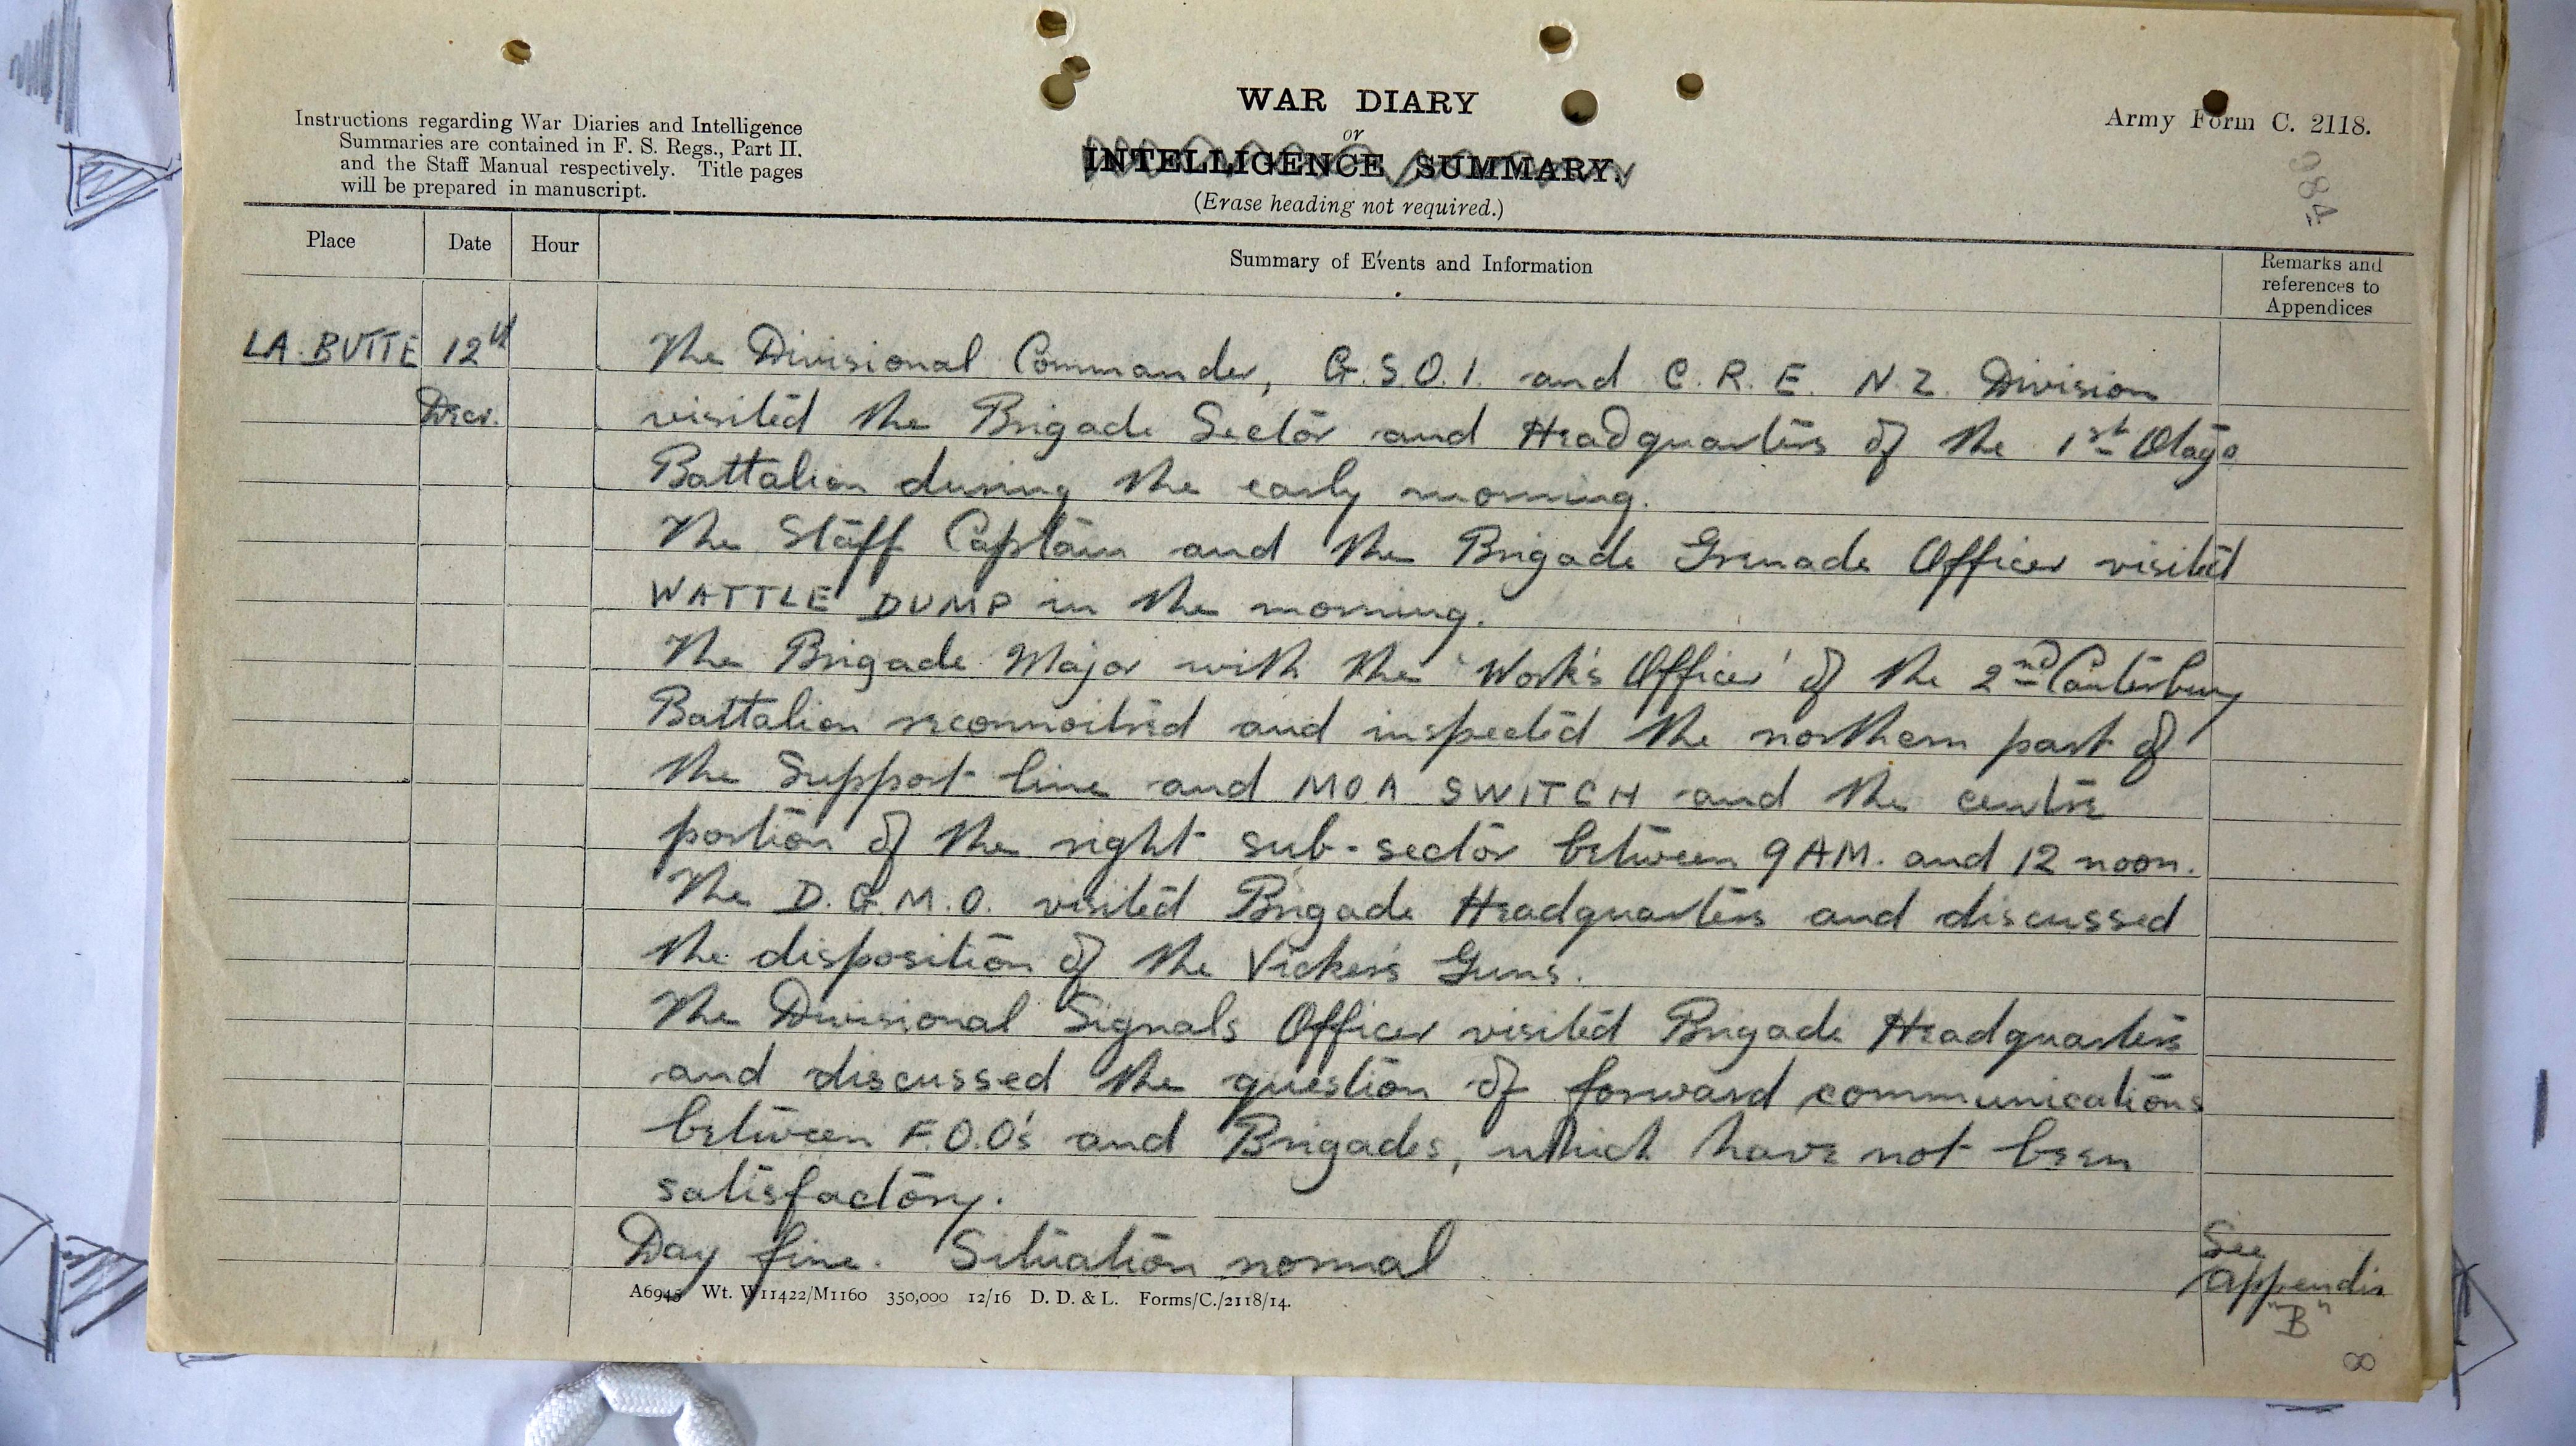 WAR DIARY
or
INTELLIGENCE SUMMARY.
(Erase heading not required.)
Instructions regarding War Diaries and Intelligence
Summaries are contained in F. S. Regs., Part II.
and the Staff Manual respectively. Title pages
will be prepared in manuscript.
Army Form C. 2118.
984
Place
Date
Hour
Summary of Events and Information
Remarks and
references to
Appendices
LA. BUTTE 12th
Decr.
The Divisional Commander, G.S.O.1. and C.R.E. N.Z. Division
visited the Brigade Sector and Headquarters of the 1st Otago
Battalion during the early morning.
The Staff Captain and the Brigade Grenade Officer visited
WATTLE DUMP in the morning.
The Brigade Major with the 'Work's Officer' of the 2nd Canterbury
Battalion reconnoitred and inspected the northern part of
the Support line and MOA SWITCH and the centre
portion of the right sub-sector between 9 AM. and 12 noon.
The D.G.M.O. visited Brigade Headquarters and discussed
the disposition of the Vickers Guns.
The Divisional Signals Officer visited Brigade Headquarters
and discussed the question of forward communications
between F.O.O's and Brigades, which have not been
satisfactory.
Day fine. Situation normal
See
Appendix
"B"
A6945 Wt. W11422/M1160 350,000 12/16 D. D. & L. Forms/C./2118/14.
8